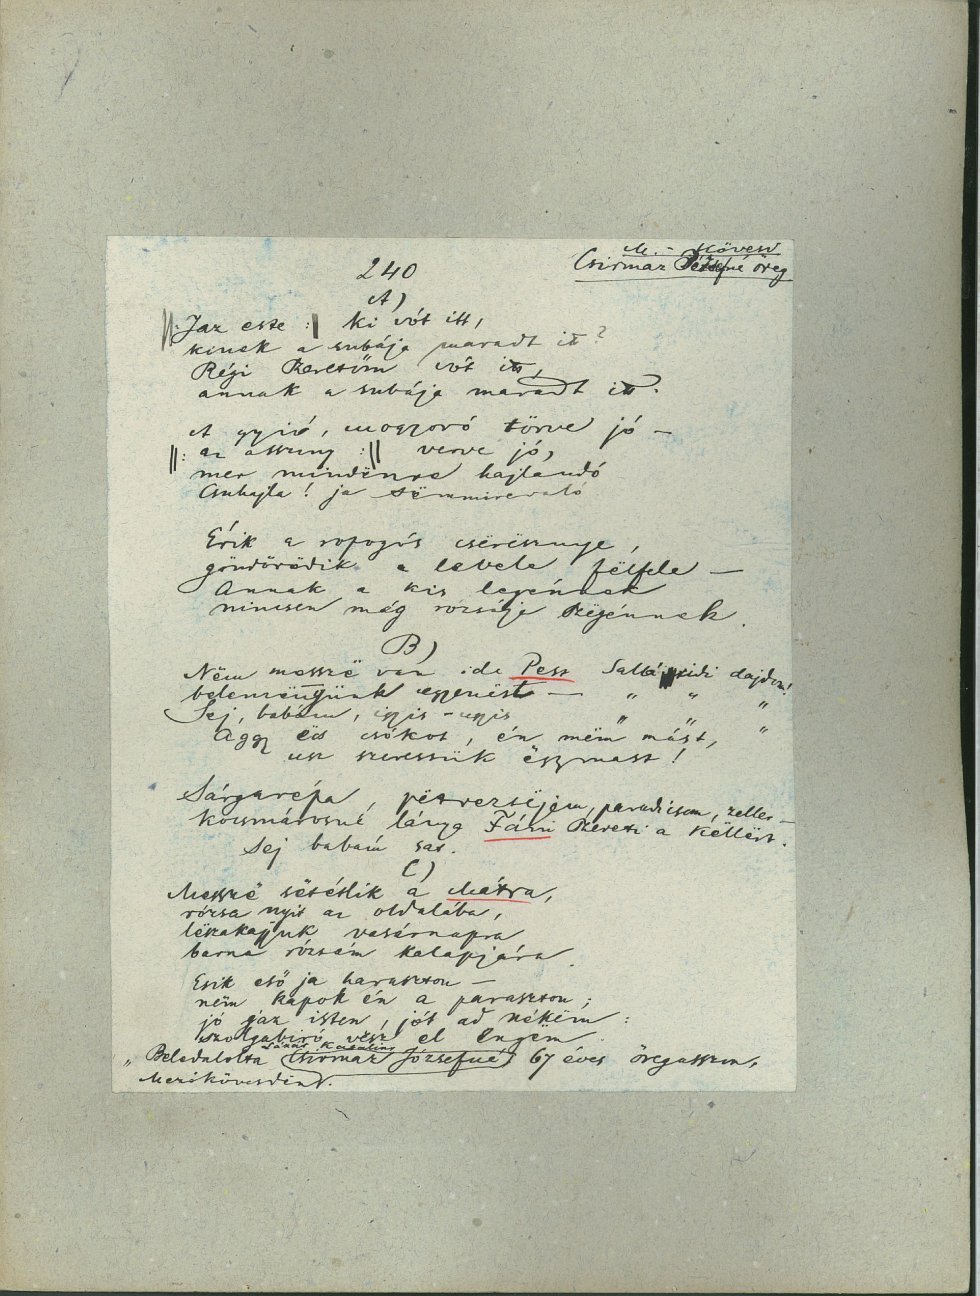 M.-Kövesd
240 Csirmaz Józsefné öreg
A)
||: Jaz este :|| ki vót itt,
kinek a subája maradt itt?
Régi szeretőm vót itt,
annak a subája maradt itt.
A gyió, mogyoró törve jó –
||: az asszony :|| verve jó,
mer mindënre hajlandó
Csuhajla! ja sëmmirevaló
Érik a ropogós cserësznye,
göndörödik a levele fëlfele –
Annak a kis legénnek
nincsen még rózsája szëgénnek.
B)
Nëm messzë van ide Pest dajdom!
belemëngyünk egyenëst – " " "
Sej, babám, igyis-ugyis " " "
Aggy ëcs csókot, én mëm mást,
usz szeressük ëgymást!
Sárgarépa, pëtrezsëjem, paradicsom, zeller –
kocsmárosné lánya Fáni szereti a këllért.
Sej babám sat.
C)
Messzë sëtétlik a Mátra,
rózsa nyit az oldalába,
lëszakajjuk vasárnapra
barna rózsám kalapjára.
Esik eső ja haraszton –
nëm kapok én a paraszton;
jó jaz isten, jót ad nékëm:
szolgabiró vësz el engëm.
Lázár Katalin
"Beladalolta Csirmaz Józsefné 67 éves öregasszon,
Mezőkövesdin".